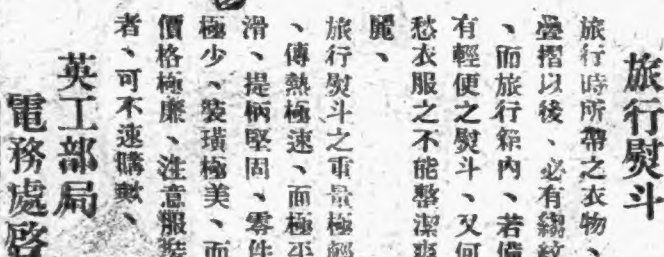 旅行熨斗
旅行時所帶之衣物、
疊摺以後、必有縐紋
、而旅行箱內、若備
有輕便之熨斗、又何
愁衣服之不能整潔爽
麗、
旅行熨斗之重量極輕
、傳熱極速、而極平
滑、提柄堅固、零件
極少、裝璜極美、而
價格極廉、注意服裝
者、可不速購歟、
英工部局
電務處啓